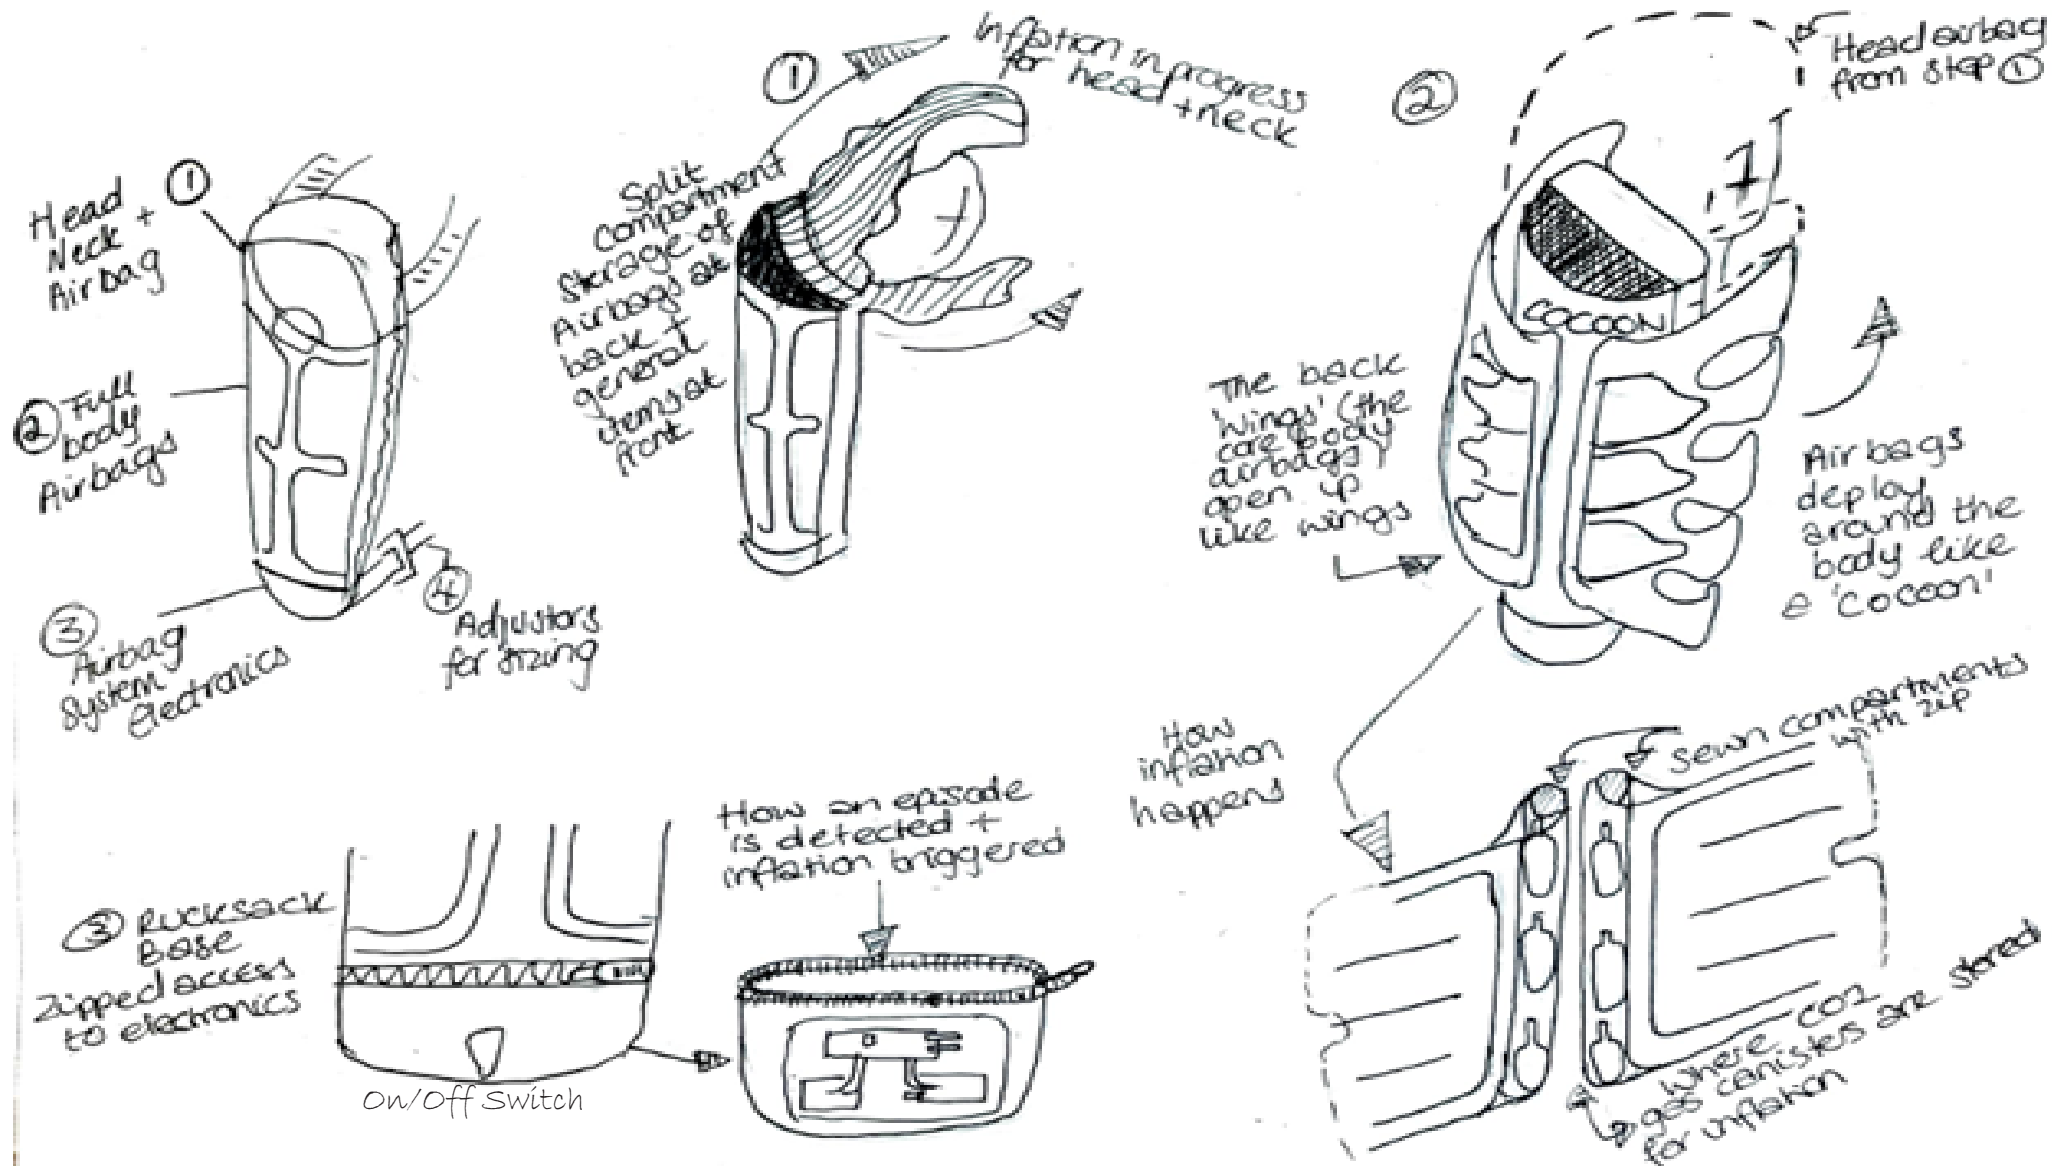 ①
Head
Neck +
Airbag
② Full
body
Airbags
③
Airbag
System
electronics
④
Adjustors
for sizing
①
Inflation in progress
for head + neck
Split
compartment
storage of
Airbags at
back +
general
items at
front
②
Head airbag
from step ①
1
COCOON
The back
'wings' (the
core body
airbags)
open up
like wings
Airbags
deploy
around the
body like
a 'cocoon'
How
inflation
happens
sewn compartments
with zip
where CO2
gas canisters are stored
for inflation
③ Rucksack
Base
Zipped access
to electronics
On/Off Switch
How an episode
is detected +
inflation triggered